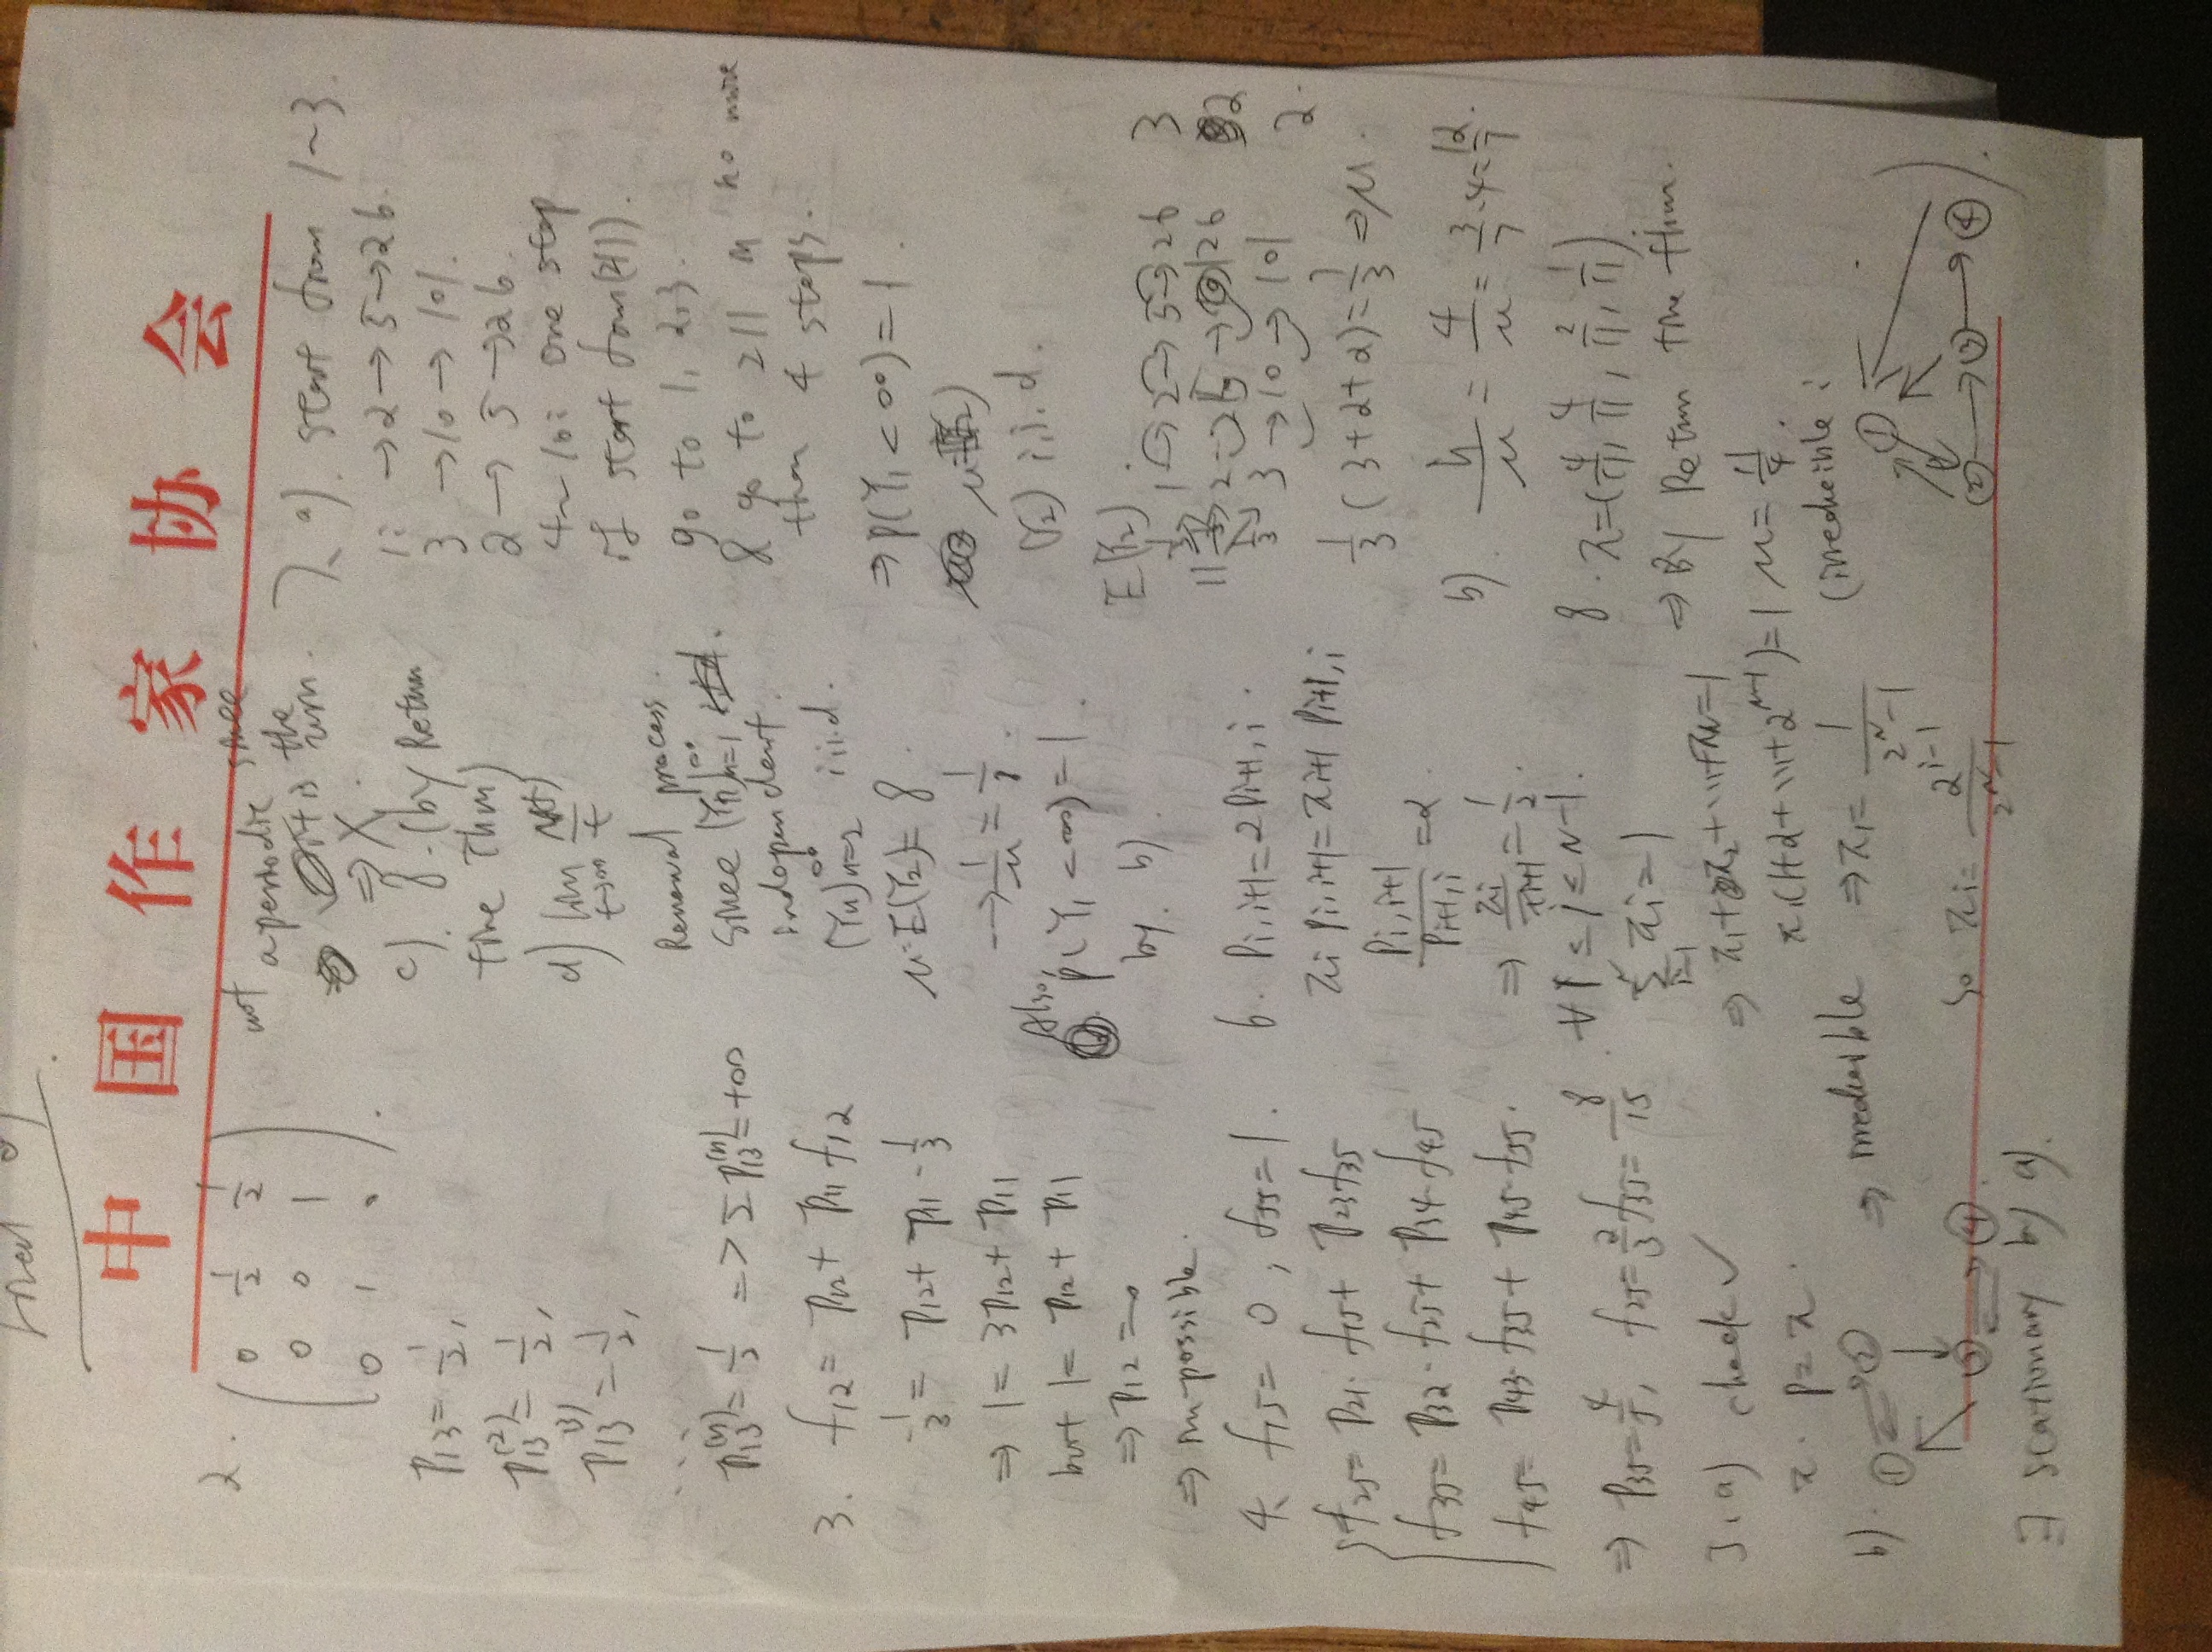 中国作家协会
2.
0 1/2 1/2
0 0 1
0 1 0
P13 = 1/2,
P13^(2) = 1/2,
P13^(3) = 1/2,
...
P13^(n) = 1/2 => Σ P13^(n) = +∞
3. f12 = P12 + P11 f12
1/3 = P12 + P11 · 1/3
⇒ 1 = 3P12 + P11
but 1 = P12 + P11
⇒ P12 = 0
⇒ impossible.
4. f15 = 0, f55 = 1.
f25 = P21 · f15 + P23 f35
f35 = P32 · f25 + P34 · f45
f45 = P43 · f35 + P45 · f55.
⇒ P35 = 4/5, f25 = 2/3 f35 = 8/15.
a) check ✓
π · P = π.
b).
① ② ③ ④
⇒ irreducible
∃ stationary by a).
not aperiodic since
it is the
⇒ X.
c). 8. (by Return
time Thm)
d) lim t→∞ N(t)/t
Renewal process.
since (Yn)n=1^∞
independent.
(Yn)n=2^∞ i.i.d.
μ = E(Y2) = 8.
→ 1/μ = 1/8.
Also,
P(Y1 < ∞) = 1.
by b).
6. Pi,i+1 = 2Pi+1,i.
πi Pi,i+1 = πi+1 Pi+1,i
Pi,i+1 / Pi+1,i = 2
⇒ πi/πi+1 = 1/2.
∀ 1 ≤ i ≤ N-1.
Σ i=1^N πi = 1
⇒ π1 + π2 + ... + πN = 1
π1(1+2+...+2^(N-1)) = 1
⇒ π1 = 1/(2^N - 1)
So πi = 2^(i-1)/(2^N - 1)
7. a). start from 1~3.
1: → 2 → 5 → 26.
3 → 10 → 101.
2 → 5 → 26.
4~10: one step
if start from (≥11).
go to 1, 2, 3.
& go to ≥11 in no more
than 4 steps.
⇒ P(Y1 < ∞) = 1.
(Y2) i.i.d.
E(Y2).
1 → 2 → 5 → 26 3
11 1/3 2 → 5 → 26 2
1/3 3 → 10 → 101 2.
1/3 (3+2+2) = 7/3 ⇒ μ.
b). 4/μ = 3/7 · 4 = 12/7.
8. π = (4/11, 4/11, 2/11, 1/11)
⇒ By Return time thm.
μ = 11/4.
(irreducible:
① ② ③ ④ ).